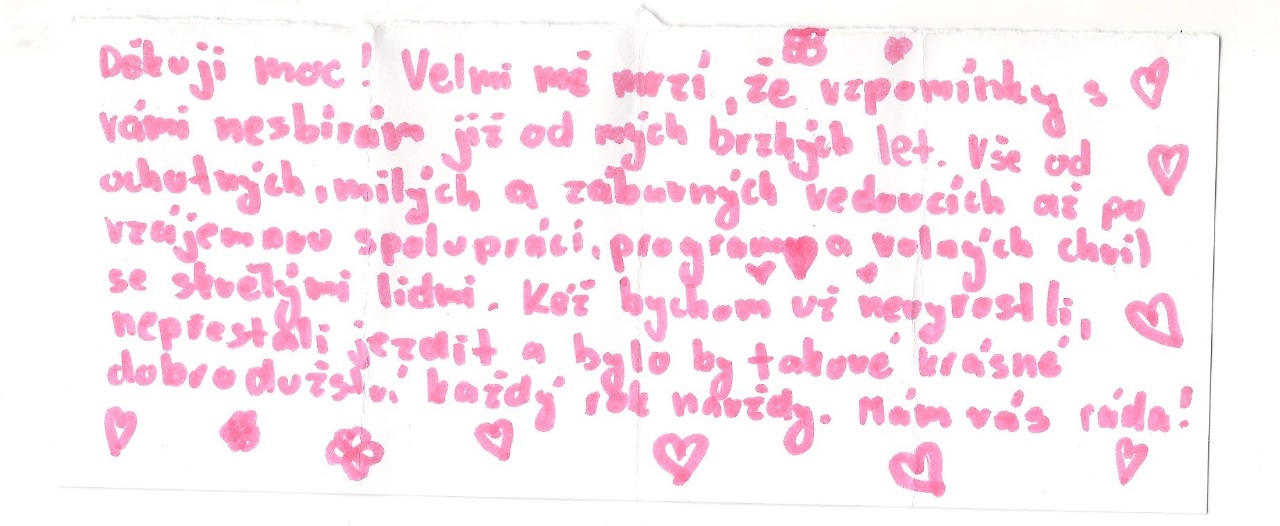 Děkuji moc! Velmi mě mrzí, že vzpomínky s
vámi nesbírám již od mých brzkých let. Vše od
ochotných, milých a zábavných vedoucích až po
vzájemnou spolupráci, program a volných chvil
se skvělými lidmi. Kéž bychom už nevyrostli,
neprestali jezdit a bylo by takové krásné
dobrodužství každý rok navždy. Mám vás ráda!